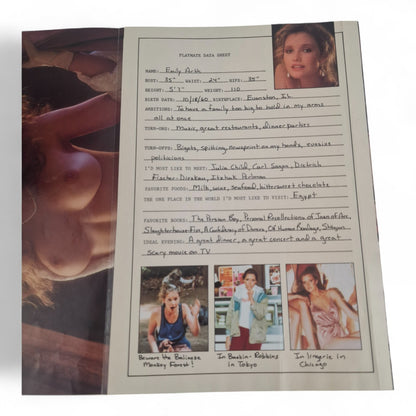 PLAYMATE DATA SHEET
NAME: Emily Arth
BUST: 35" WAIST: 24" HIPS: 35"
HEIGHT: 5'7" WEIGHT: 110
BIRTH DATE: 10/18/60 BIRTHPLACE: Evanston, IL
AMBITIONS: To have a family too big to hold in my arms
all at once
TURN-ONS: Music, great restaurants, dinner parties
TURN-OFFS: Bigots, spitting, newsprint on my hands, evasive
politicians
I'D MOST LIKE TO MEET: Julia Child, Carl Sagan, Dietrich
Fischer-Dieskau, Itzhak Perlman
FAVORITE FOODS: Milk, wine, seafood, bittersweet chocolate
THE ONE PLACE IN THE WORLD I'D MOST LIKE TO VISIT: Egypt
FAVORITE BOOKS: The Persian Boy, Personal Recollections of Joan of Arc,
Slaughterhouse-Five, A Confederacy of Dunces, Of Human Bondage, Shōgun
IDEAL EVENING: A great dinner, a great concert and a great
scary movie on TV
Beware the Balinese
Monkey Forest!
In Baskin-Robbins
in Tokyo
In lingerie in
Chicago